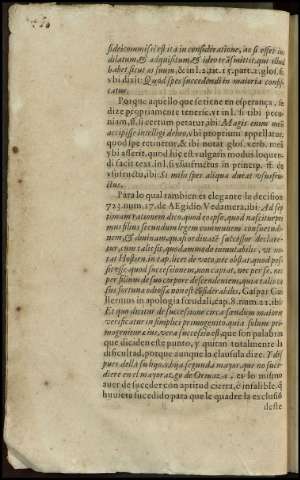 fideicommissi est ita in consideratione, ac si esset in
ditatum, & adquisitum, & ideo transmittit, qui illud
habet sicut as suum, & in l. 2. tit. 15. part. 2. glos. f.
vbi dixit: Quod spes succedendi in maioria consis
catur.
Porque aquello que se tiene en esperança, se
dize propriamente tenerse, vt in l. si tibi pecu-
niam, ff. si certum petatur, ibi: Magis enim meũ
accipisse intelligi debeo, vbi proprium appellatur,
quod spe retinetur, & ibi notat glos. verb. meũ
vbi asserit, quod hic est vulgaris modus loquen-
di facit text. in l. 1. vsusfructus in princip. ff. de
vsufructu, ibi: Si mihi spes aliqua durat vsusfru-
ctus.
Para lo qual tambien es elegante la decision
723. num. 17. de AEgidio, Vedamera, ibi: Ad sep
timam rationem dico, quod eo ipso, quod nascitur pri
mus filius secundum legem communem consuetudi-
nem, & diuinam, quasi
tur, cum talis sit, quodammodo immutabilis, vt no
tat Hostien. in cap. licet de voto, nec obstat, quod pos
sit esse, quod successionem, non capiat, nec per se, nec
per filium de suo corpore descendentem, quia talis ca
sus fortuna odiosa non est
in apologia fœudali, cap. 8. num. 21. ibi:
Et quo dicitur de successione circa fœudum maiori
verificatur in simplici primogenito, quia solum pri-
mogenitura eius, vera successio est, que son palabras
que dicaden este punto, y quitan totalmente la
dificultad, porque aunque la clausula dize. Y dis
pues della su hijo, ò hija segunda mayor, que no suce-
diere en el mayorazgo de Ormaza. es lo mismo
auer de suceder con aptitud cierta, è infalible, q̃
huuiera sucedido para que le quadre la exclusiõ
deste